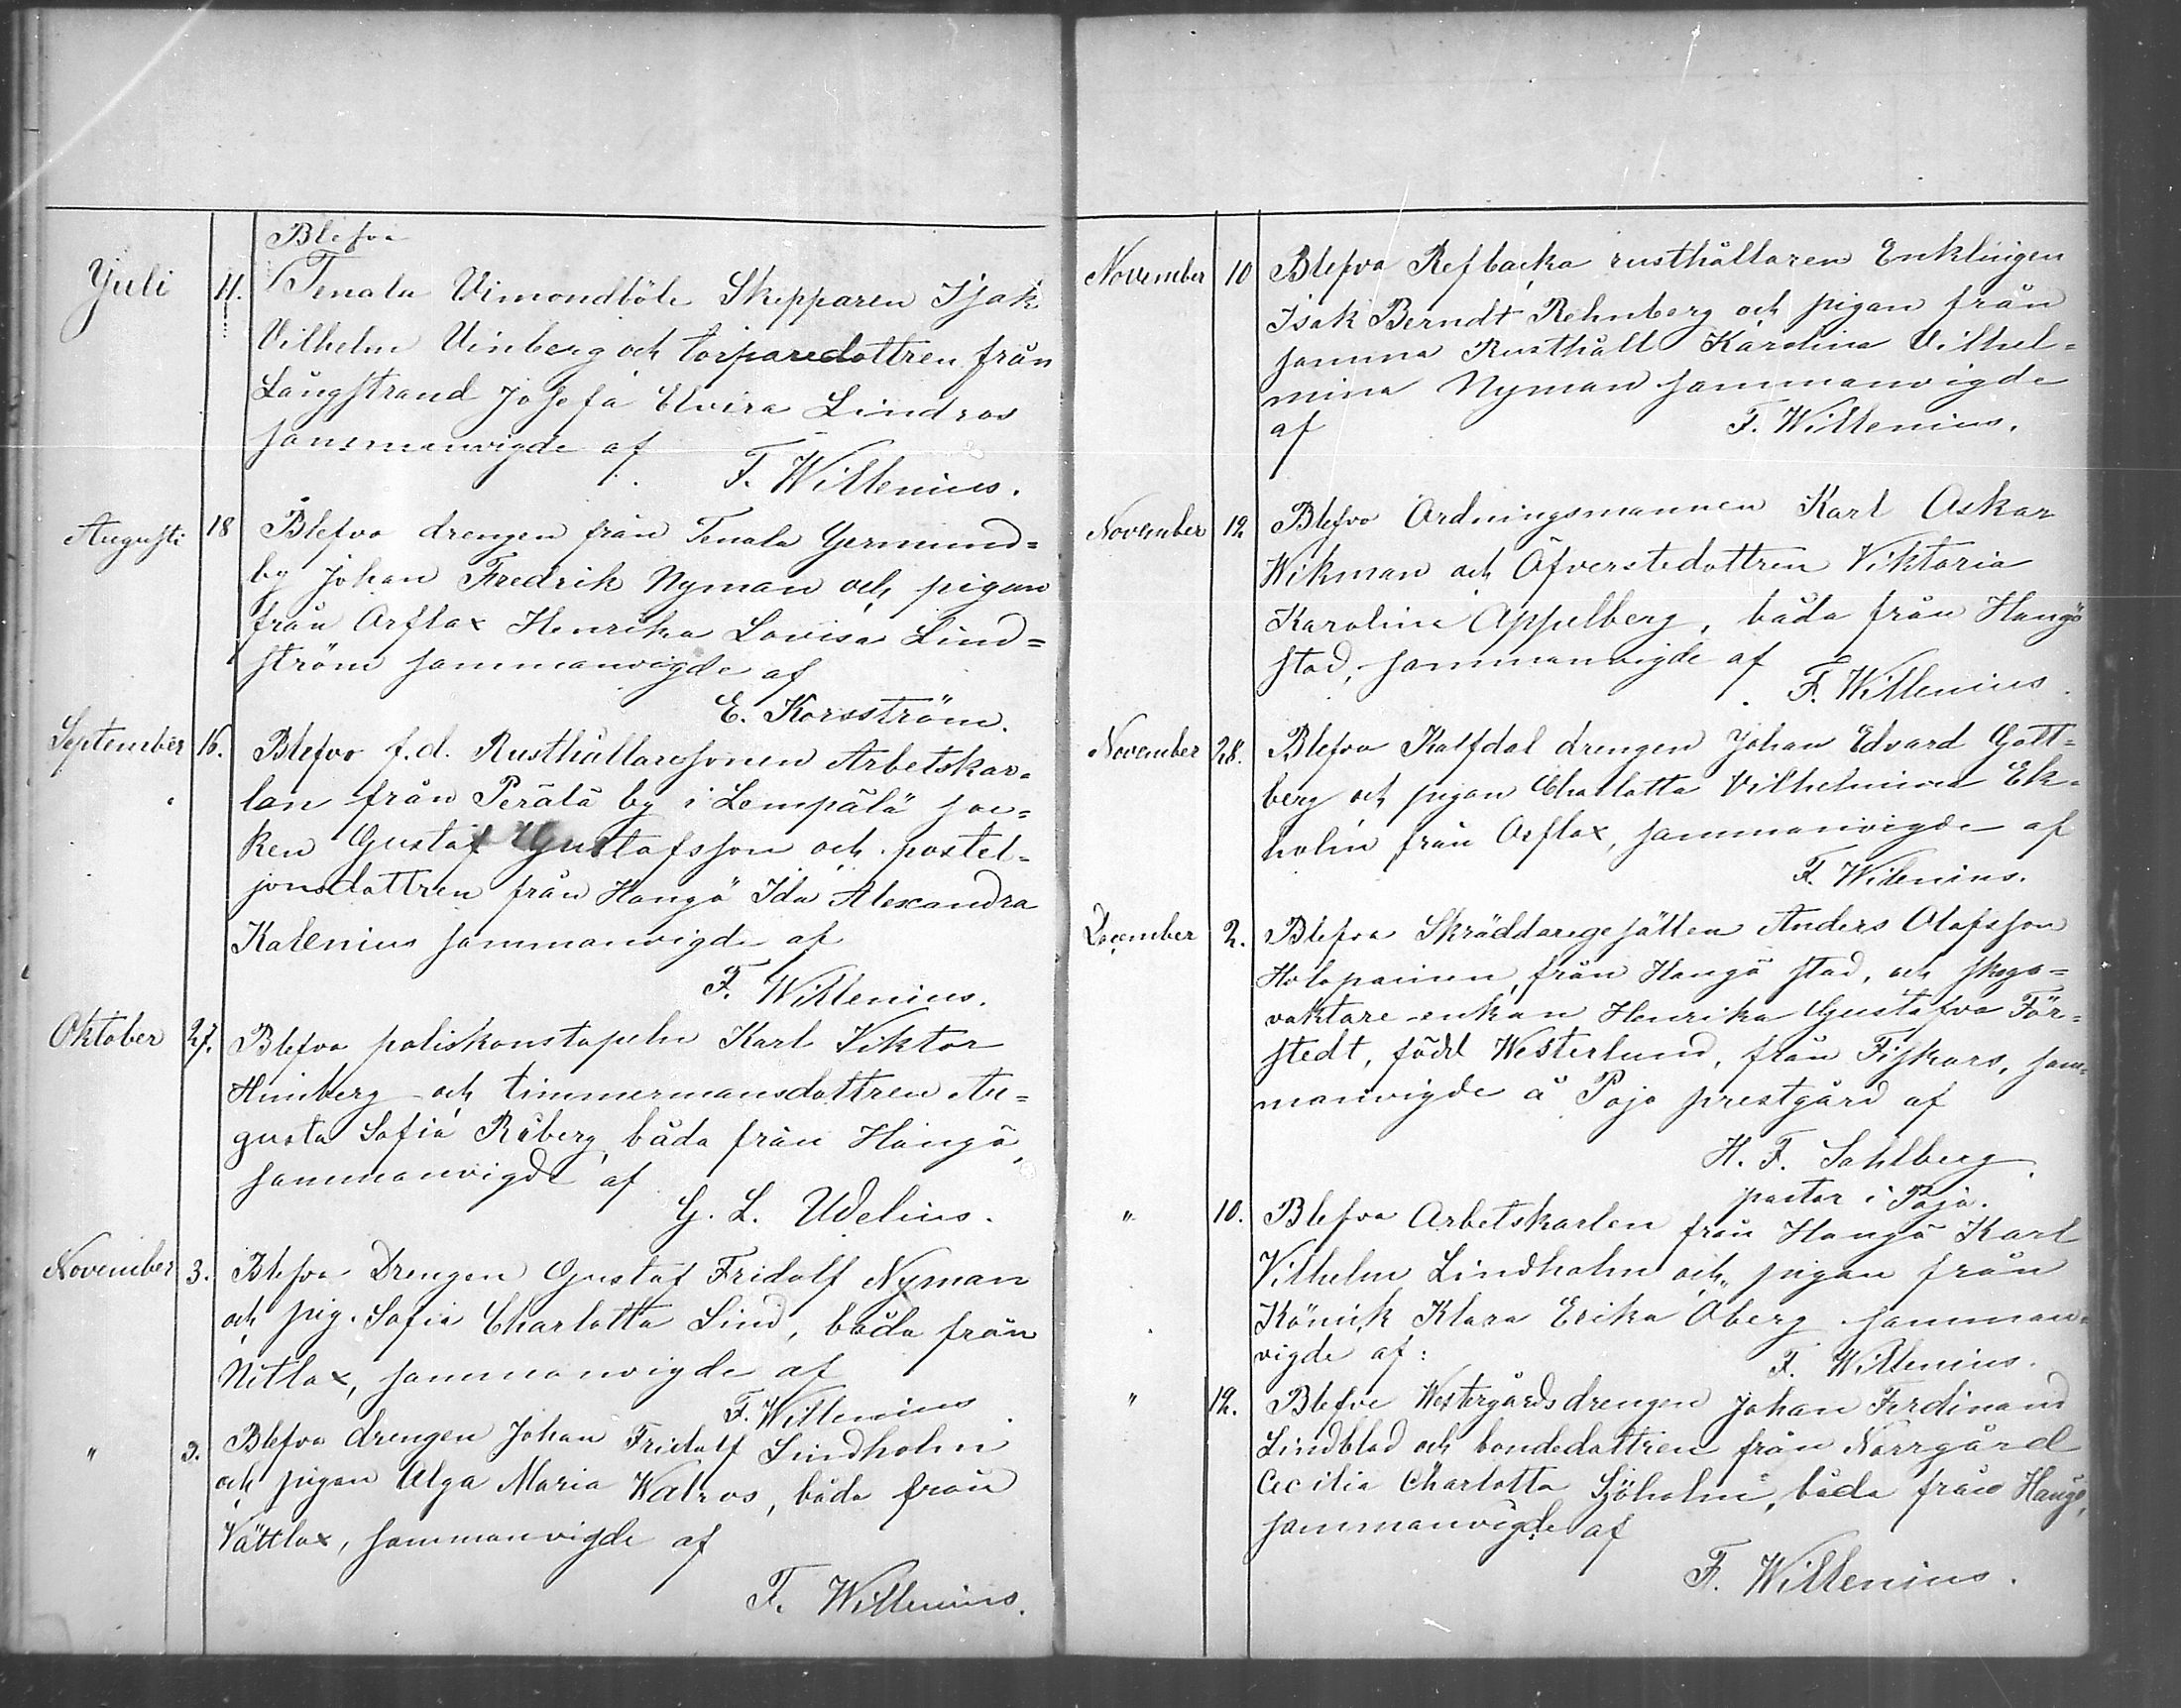 Blefvo
Juli 11. Tenala Vimondböle Skepparen Isak
Vilhelm Vinberg och torparedottren från
Långstrand Josefa Elvira Lindros
sammanvigde af
F. Willenius.
Augusti 18 Blefvo drengen från Tenala Germund=
by Johan Fredrik Nyman och pigan
från Orflax Henrika Lovisa Lind=
ström sammanvigde af
E. Korsström.
September 16. Blefvo f.d. Rusthållaresonen Arbetskar=
len från Perälä by i Lempälä soc=
ken Gustaf Gustafsson och postel=
jonsdottren från Hangö Ida Alexandra
Kalenius sammanvigde af
F. Willenius.
Oktober 27. Blefvo poliskonstapeln Karl Viktor
Himberg och timmermansdottren Au=
gusta Sofia Råberg, båda från Hangö,
sammanvigde af
G. L. Udelius.
November 3. Blefvo Drengen Gustaf Fridolf Nyman
och pig. Sofia Charlotta Lind, båda från
Nitlax, sammanvigde af
F. Willenius
" 3. Blefvo drengen Johan Fridolf Lindholm
och pigan Olga Maria Walros, båda från
Vättlax, sammanvigde af
F. Willenius.
November 10 Blefvo Refbacka rusthållaren Enklingen
Isak Berndt Rehnberg och pigan från
samma Rusthåll Karolina Vilhel=
mina Nyman sammanvigde
af F. Willenius.
November 12 Blefvo Ordningsmannen Karl Oskar
Wikman och Öfverstedottren Viktoria
Karolina Appelberg, båda från Hangö
stad, sammanvigde af
F. Willenius.
November 28. Blefvo Kalfdal drengen Johan Edvard Gott=
berg och pigan Charlotta Vilhelmina Ek=
holm från Orflax, sammanvigde af
F. Wilenius.
December 2. Blefvo Skräddaregesällen Anders Olofsson
Holopainen, från Hangö stad, och skogs=
vaktare-enkan Henrika Gustafva För=
stedt, född Westerlund, från Fiskars, sam=
manvigde å Pojo prestgård af
H. F. Sahlberg
pastor i Pojo.
" 10. Blefvo Arbetskarlen från Hangö Karl
Vilhelm Lindholm och pigan från
Klara Erika Öberg samman=
vigde af: F. Willenius.
" 12. Blefvo Westergårdsdrengen Johan Ferdinand
Lindblad och bondedottren från Norrgård
Cecilia Charlotta Sjöholm, båda från Hangö,
sammanvigde af
F. Willenius.